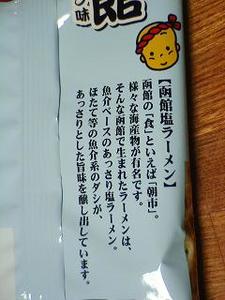 の味
館
【函館塩ラーメン】
函館の「食」といえば「朝市」。
様々な海産物が有名です。
そんな函館で生まれたラーメンは、
魚介ベースのあっさり塩ラーメン。
ほたて等の魚介系のダシが、
あっさりとした旨味を醸し出しています。